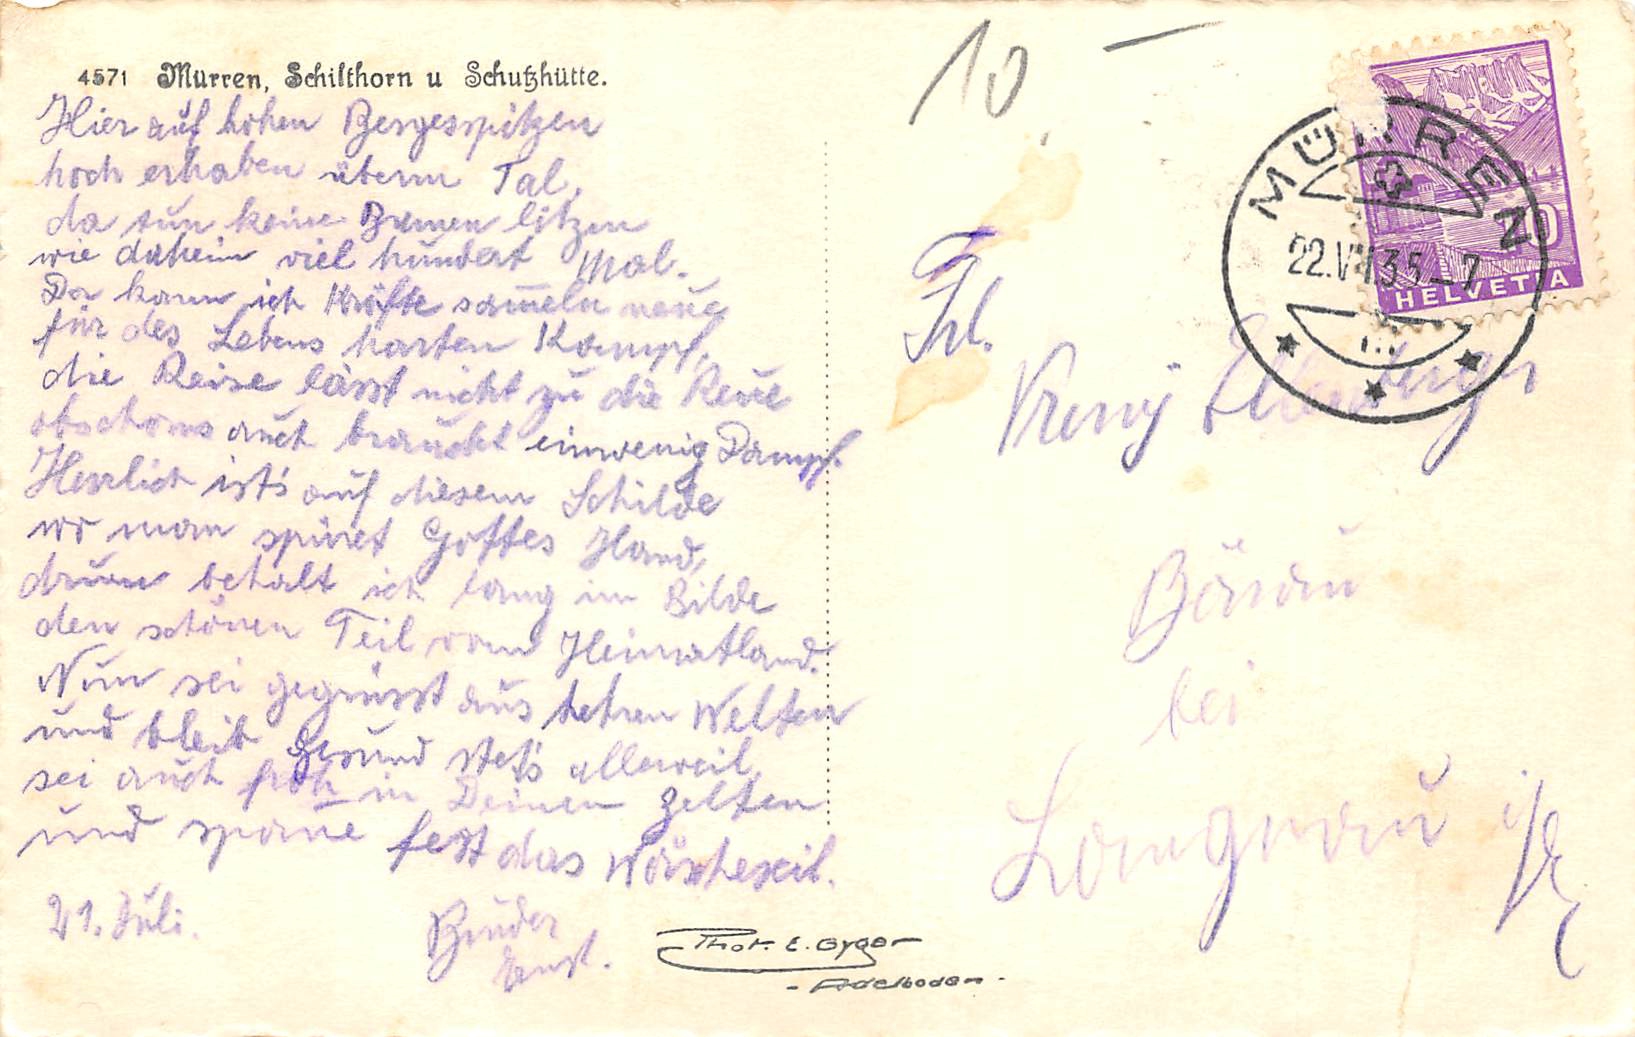 4571 Mürren, Schilthorn u Schutzhütte.
Hier auf hohen Bergesspitzen
hoch erhaben überm Tal,
da tun keine Bremen litzen
wie daheim viel hundert Mal.
Da kann ich Kräfte sam̄eln neue
für des Lebens harten Kampf,
die Reise lässt nicht zu die Reue
obschons auch braucht einwenig Dampf.
Herrlich ist's auf diesem Schilde
wo man spüret Gottes Hand,
drum behalt ich lang im Bilde
den schönen Teil vom Heimatland.
Nun sei gegrüsst aus hehren Welten
und bleib gesund stet's alleweil,
sei auch froh in Deinen Zelten
und spañe fest das Wöscheseil.
21. Juli.
Bruder
Ernst.
Phot. E. Gyger
- Adelboden -
10 –
MÜRREN
22.VII.35-7
10
HELVETIA
Frl.
Vreny
Bärau
bei
Langnau i/E